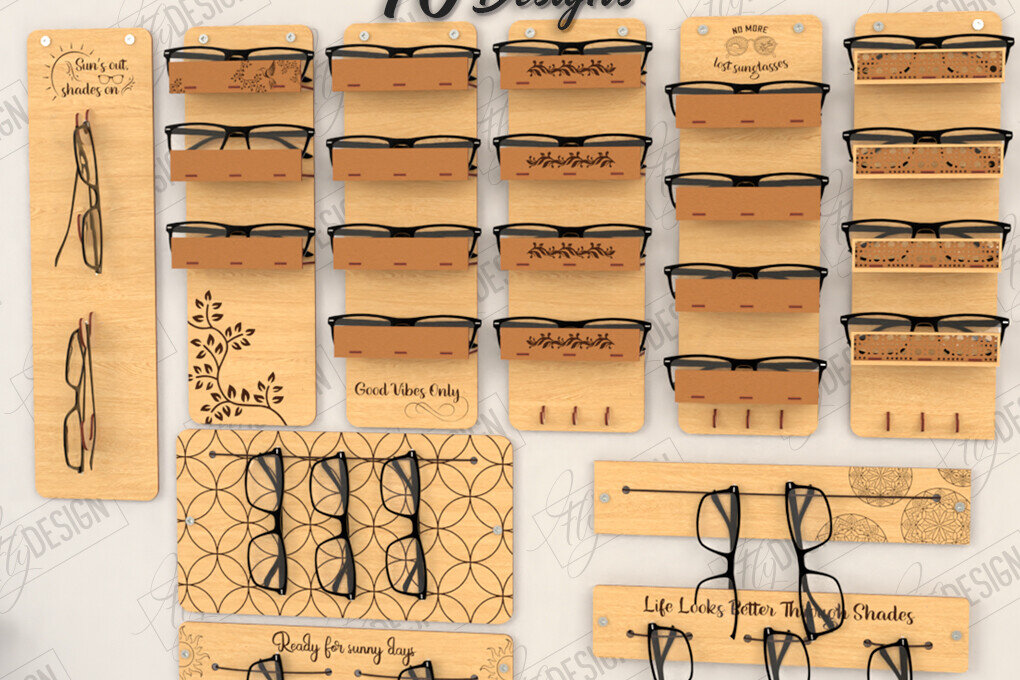 10 Designs
Sun's out,
shades on
NO MORE
lost sunglasses
Good Vibes Only
Life Looks Better Through Shades
Ready for sunny days
Fly DESIGN